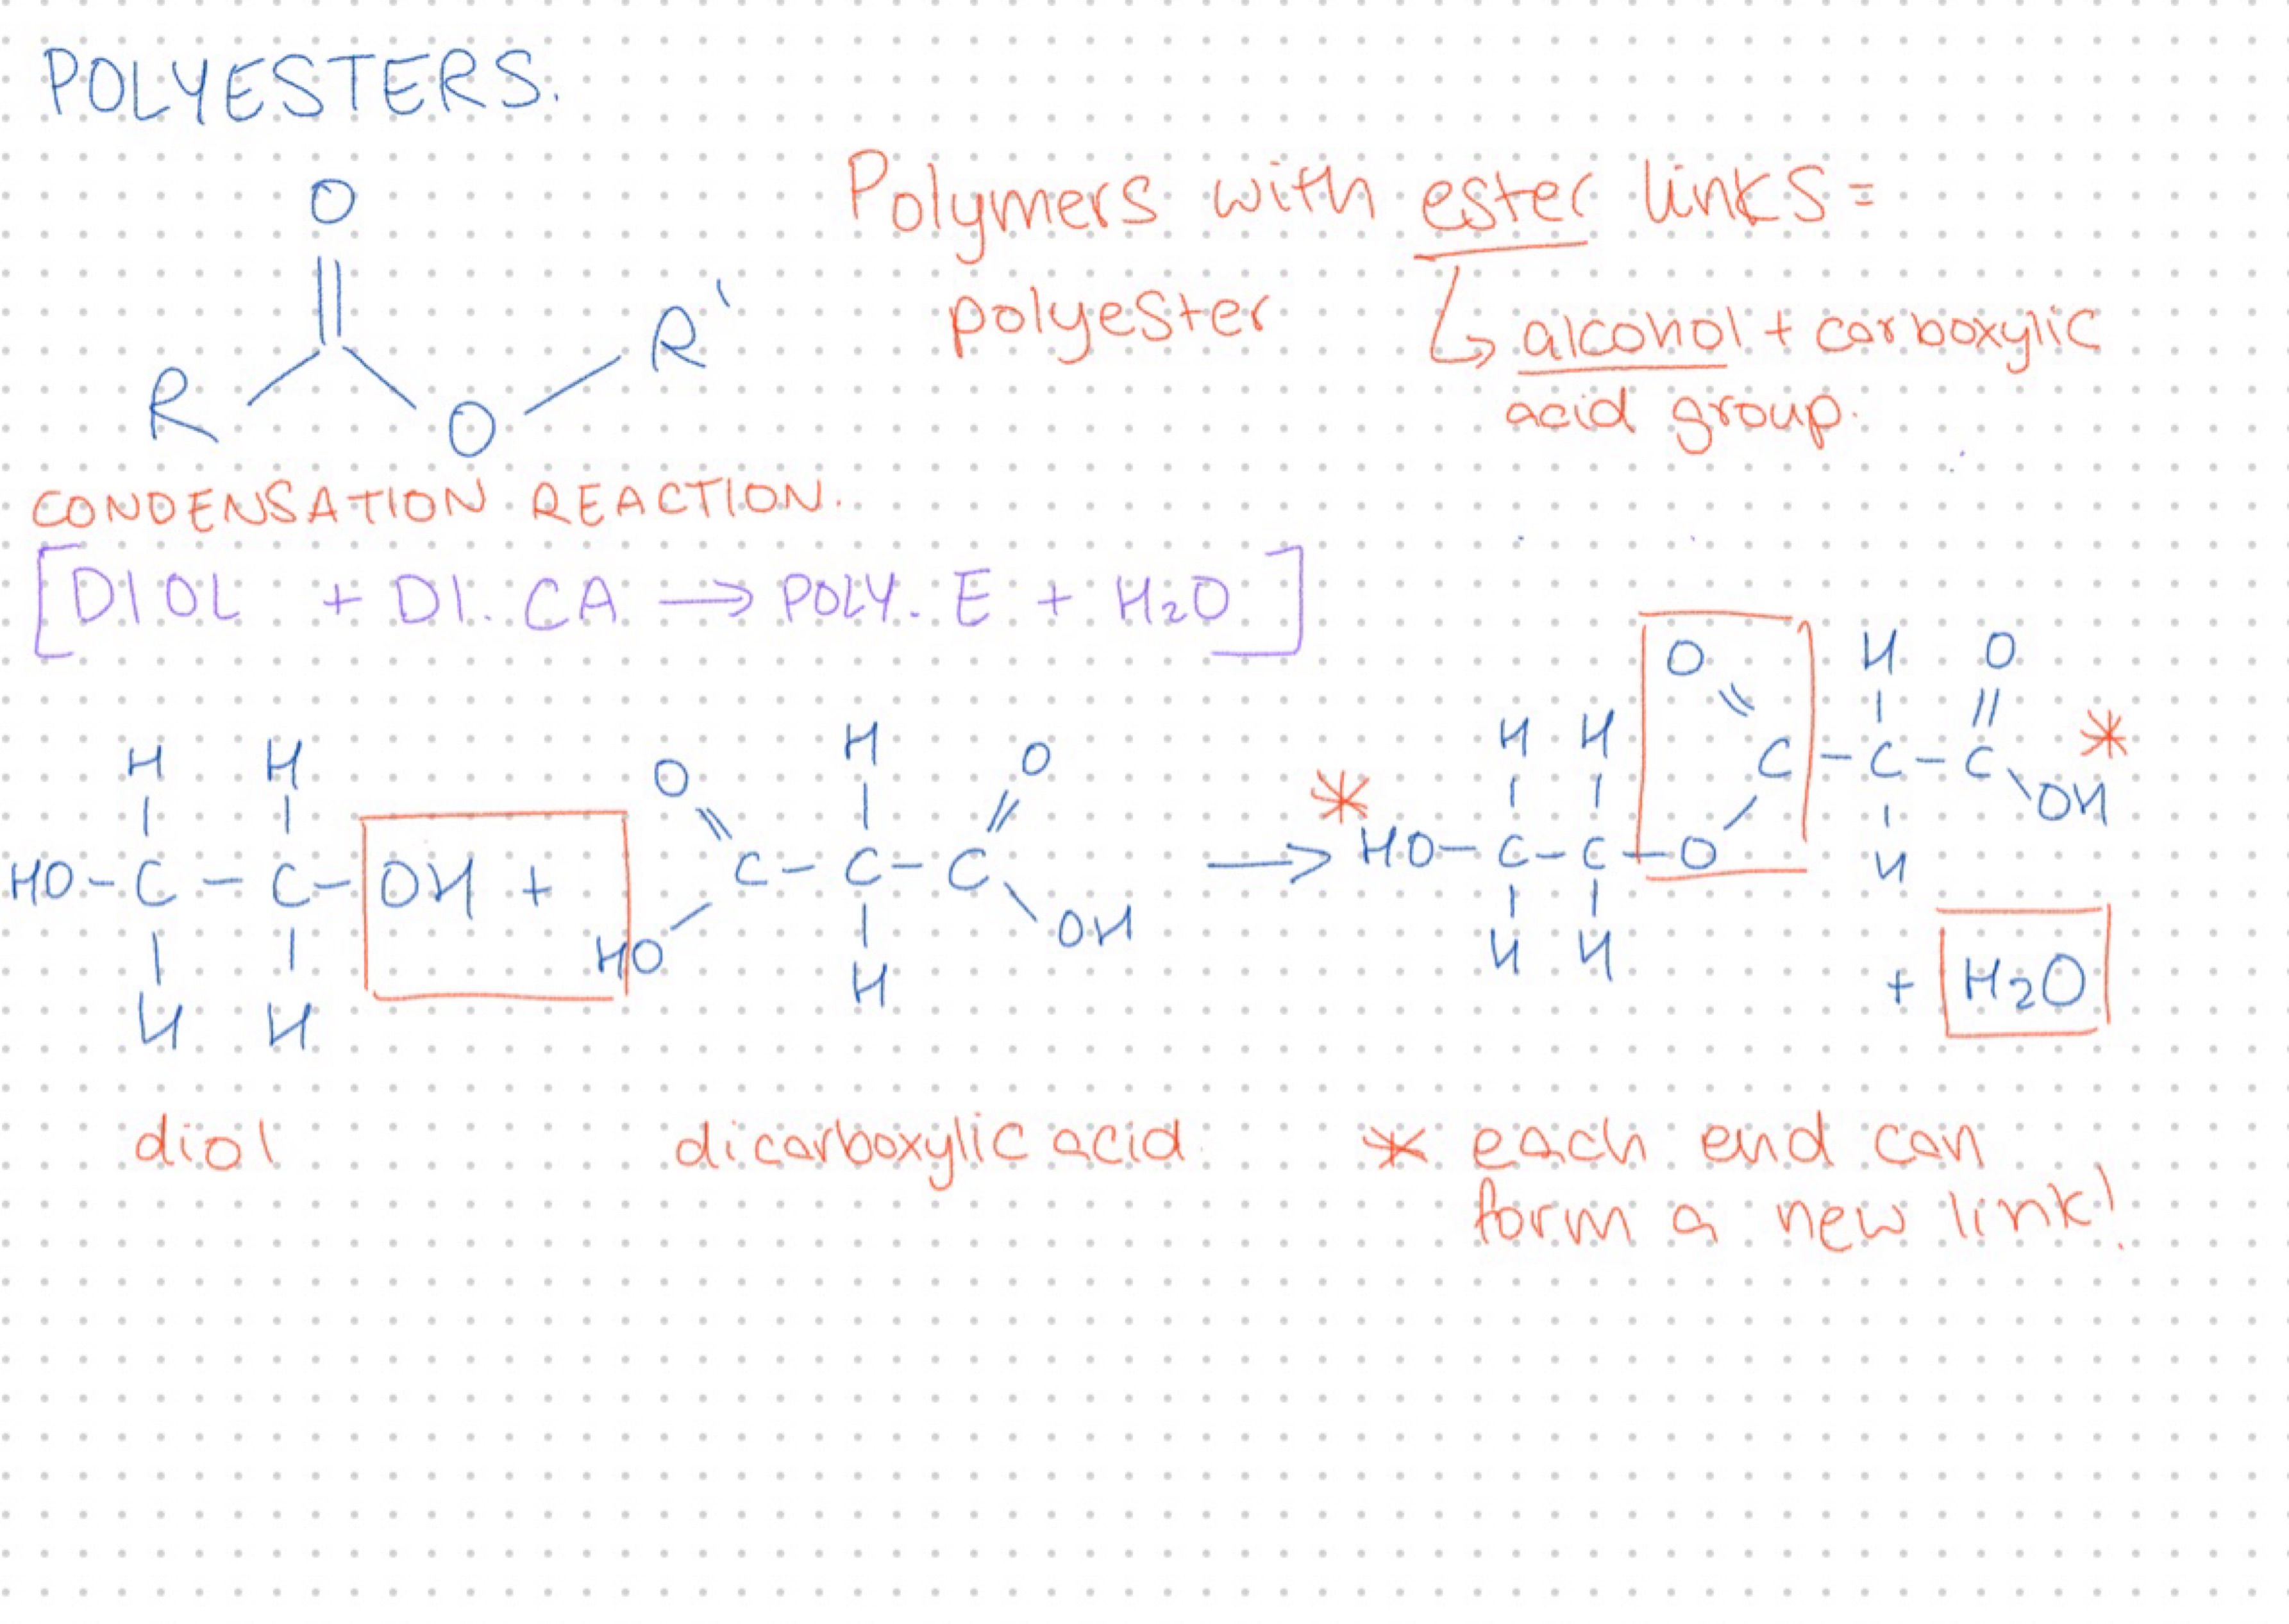 POLYESTERS.
O
R O R'
Polymers with ester links =
polyester
alcohol + carboxylic
acid group.
CONDENSATION REACTION.
[DIOL + DI. CA → POLY. E + H₂O]
H H
HO-C-C-OH +
H H
O H O
C-C-C
HO H OH
→
O H O
H H C-C-C *
* HO-C-C-O H OH
H H
+ H₂O
diol
dicarboxylic acid.
* each end can
form a new link!